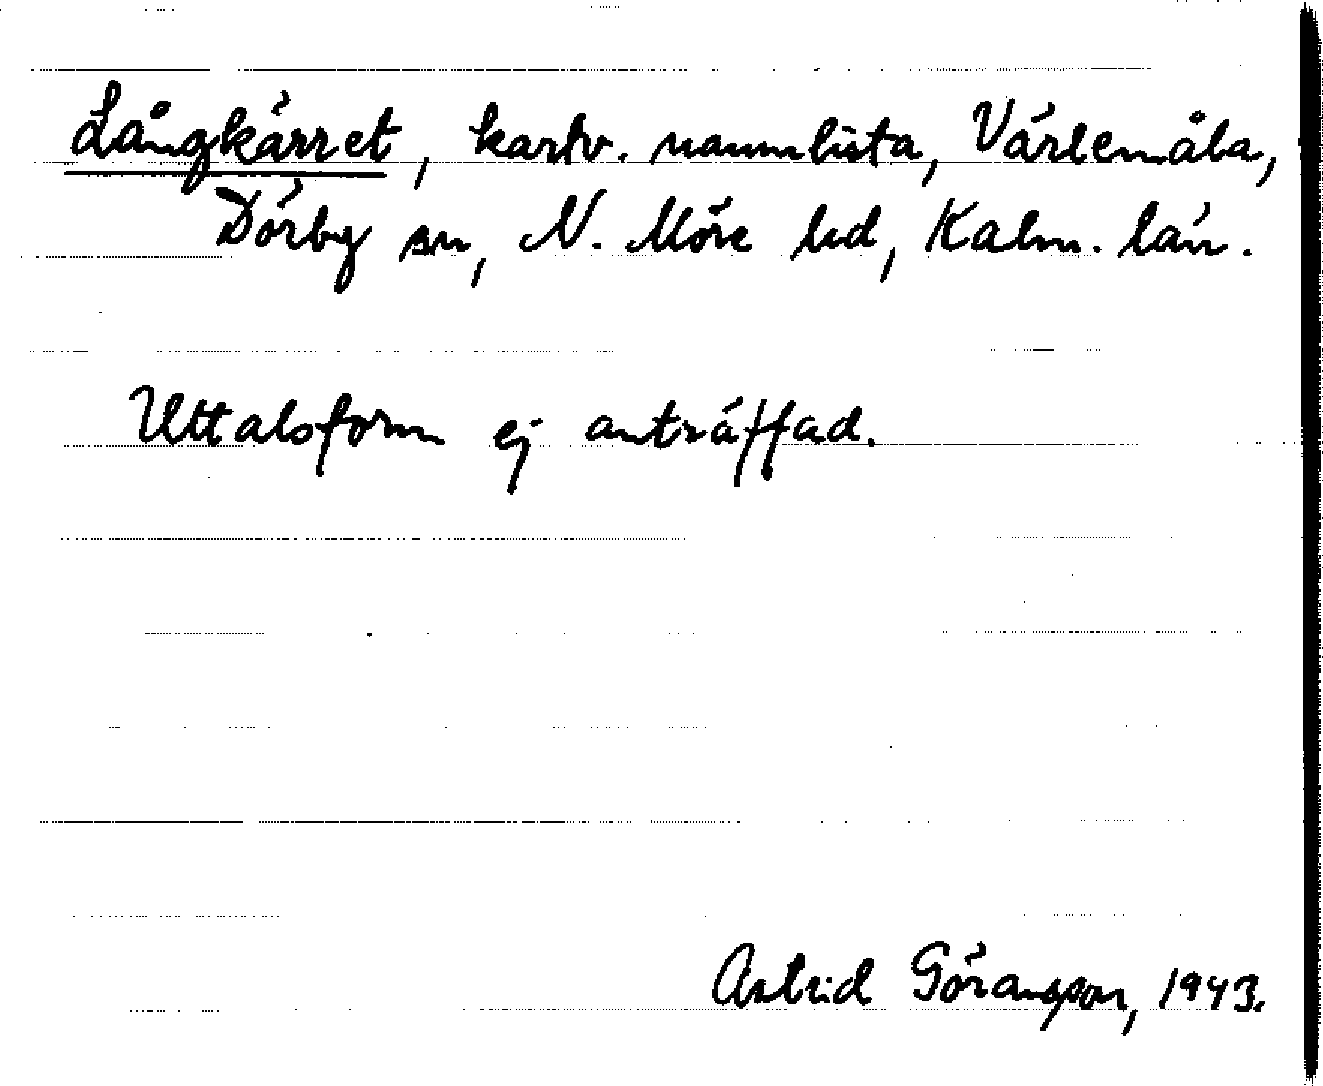 Långkärret, kartv. namnlista, Värlemåla,
Dörby sn, N. Möre hd, Kalm. län.
Uttalsform ej anträffad.
Astrid Görangson, 1943.